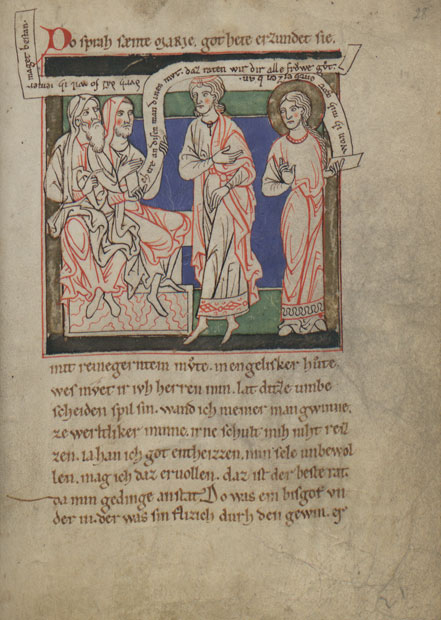 Do sprah sente Marie, got hete erzundet sie.
maget bestan.
chere an disen man dinen mvt. daz raten wir dir alle frowe gvt.
mit reinegerntem mv̊te. in engelisker hv̊te.
wes mvet ir ivh herren min. lat ditze umbe
scheiden spil sin. wand ich niemer man gwinne.
ze werltliker minne. irne schult mih niht reiz
zen. ia han ich got entheizzen. min sele unbewol
len. mag ich daz ervollen. daz ist der beste rat.
da min gedinge an stat. Do was ein bisgof vn
der in. der was sin flizich durh den gewin. er